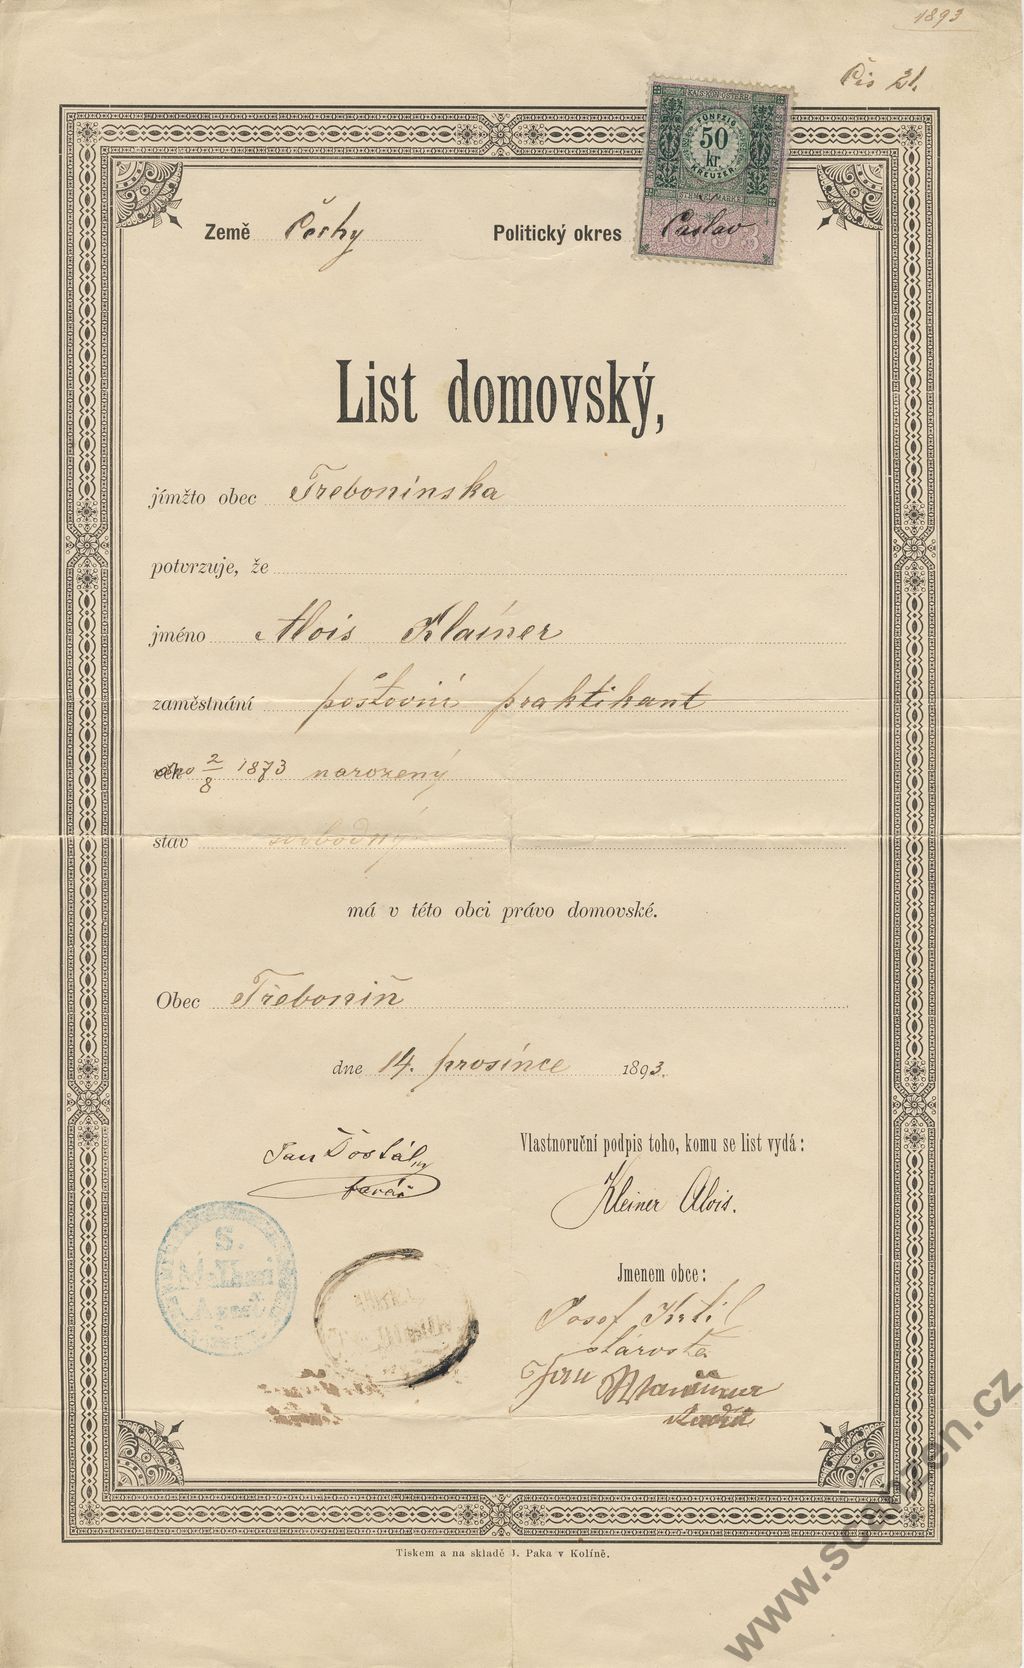 1893
Čis 21.
KAIS. KÖN. ÖSTERR.
FÜNFZIG
50
kr.
KREUZER
STEMPEL MARKE
1893
Země Čechy Politický okres Časlav
List domovský,
jímžto obec Třebonínska
potvrzuje, že
jméno Alois Klainer
zaměstnání poštovní praktikant
věk 2/8 1873 narozený
stav svobodný
má v této obci právo domovské.
Obec Třebonín
dne 14. prosince 1893.
Jan Dostál
Vlastnoruční podpis toho, komu se list vydá:
Kleiner Alois.
S.
Jmenem obce:
Josef Krtil
starosta
Jan
Tiskem a na skladě J. Paka v Kolíně.